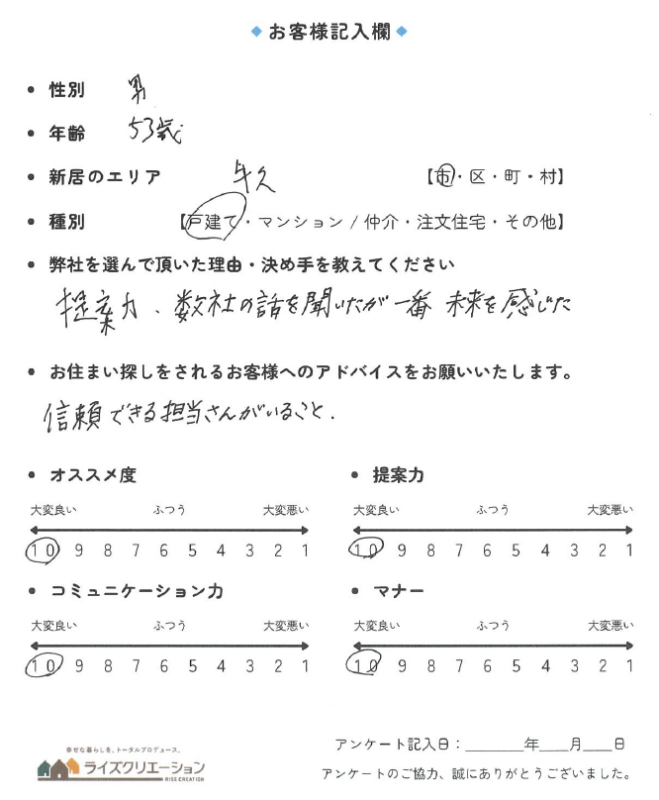 ◆お客様記入欄◆
• 性別 男
• 年齢 53歳
• 新居のエリア 牛久 【市・区・町・村】
• 種別 【戸建て・マンション / 仲介・注文住宅・その他】
• 弊社を選んで頂いた理由・決め手を教えてください
提案力、数社の話を聞いたが一番 未来を感じた
• お住まい探しをされるお客様へのアドバイスをお願いいたします。
信頼できる担当さんがいること.
• オススメ度 • 提案力
大変良い ふつう 大変悪い 大変良い ふつう 大変悪い
10 9 8 7 6 5 4 3 2 1 10 9 8 7 6 5 4 3 2 1
• コミュニケーション力 • マナー
大変良い ふつう 大変悪い 大変良い ふつう 大変悪い
10 9 8 7 6 5 4 3 2 1 10 9 8 7 6 5 4 3 2 1
アンケート記入日：______年___月___日
幸せな暮らしを、トータルプロデュース。
ライズクリエーション
RISE CREATION
アンケートのご協力、誠にありがとうございました。